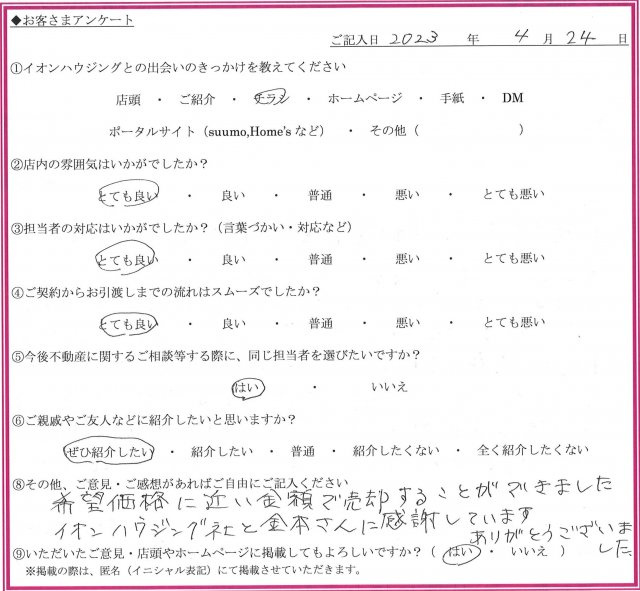 ◆お客さまアンケート
ご記入日 2023 年 4 月 24 日
①イオンハウジングとの出会いのきっかけを教えてください
店頭 ・ ご紹介 ・ チラシ ・ ホームページ ・ 手紙 ・ DM
ポータルサイト（suumo,Home'sなど） ・ その他（ ）
②店内の雰囲気はいかがでしたか？
とても良い ・ 良い ・ 普通 ・ 悪い ・ とても悪い
③担当者の対応はいかがでしたか？（言葉づかい・対応など）
とても良い ・ 良い ・ 普通 ・ 悪い ・ とても悪い
④ご契約からお引渡しまでの流れはスムーズでしたか？
とても良い ・ 良い ・ 普通 ・ 悪い ・ とても悪い
⑤今後不動産に関するご相談等する際に、同じ担当者を選びたいですか？
はい ・ いいえ
⑥ご親戚やご友人などに紹介したいと思いますか？
ぜひ紹介したい ・ 紹介したい ・ 普通 ・ 紹介したくない ・ 全く紹介したくない
⑧その他、ご意見・ご感想があればご自由にご記入ください
希望価格に近い金額で売却することができました
イオンハウジング社と金本さんに感謝しています
ありがとうございま
した
⑨いただいたご意見・店頭やホームページに掲載してもよろしいですか？（ はい ・ いいえ ）
※掲載の際は、匿名（イニシャル表記）にて掲載させていただきます。